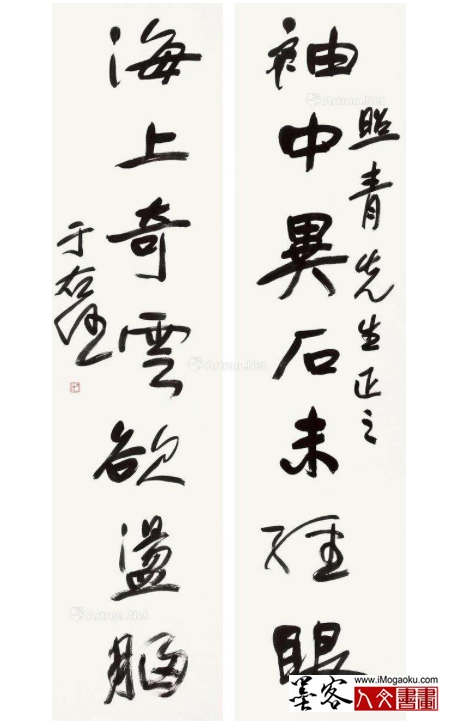 照青先生正之
袖中異石未經眼
海上奇雲欲盪胸
于右任
Artron.Net
Artron.Net
Artron.Net
Artron.Net
墨客
www.iMogaoku.com
人文書畫